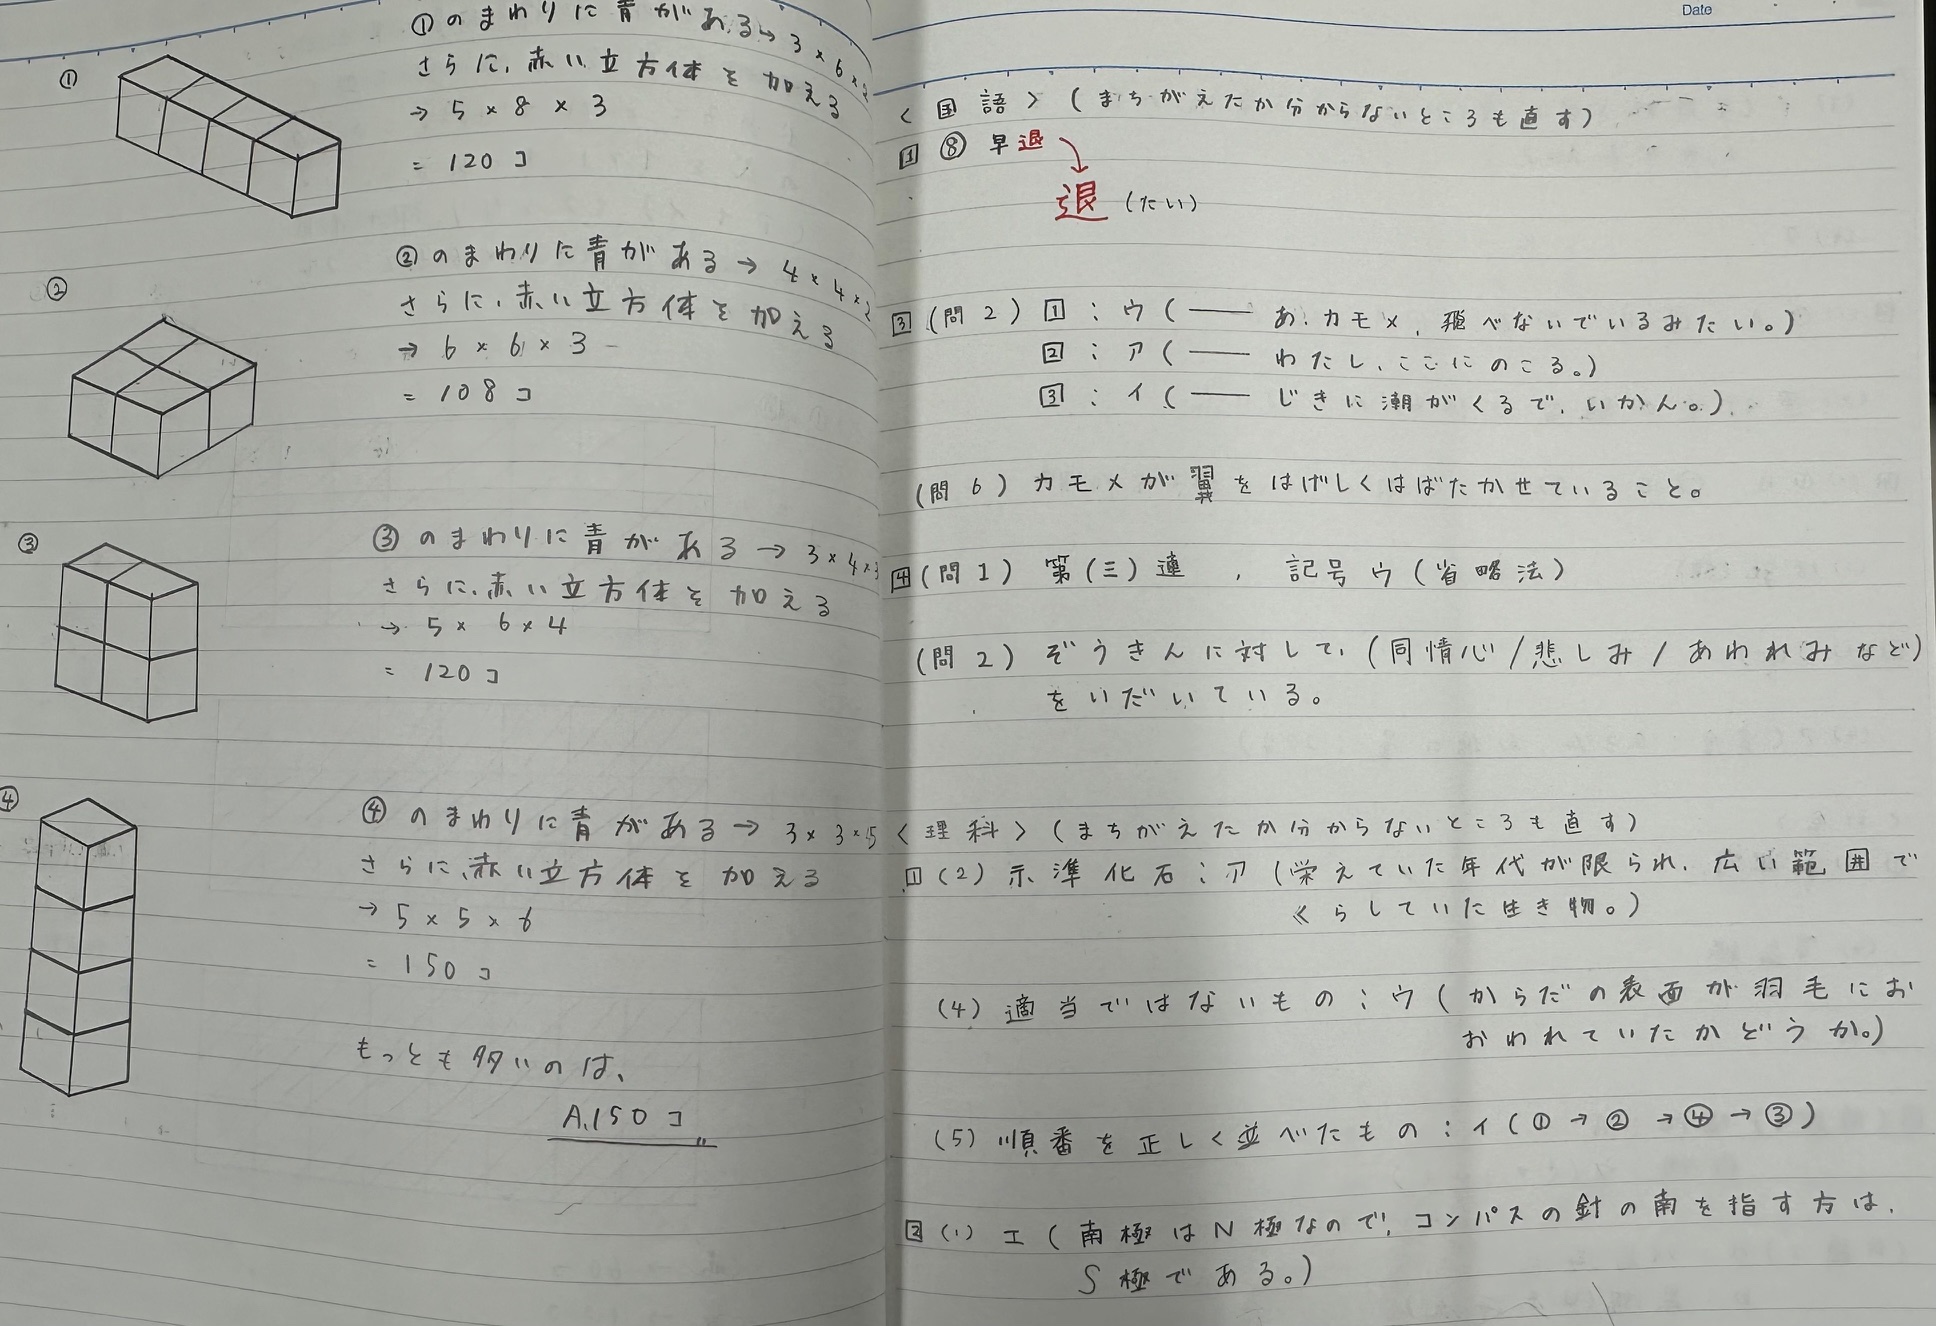 ①
①のまわりに青がある→3×6×2
さらに、赤い立方体を加える
→5×8×3
=120コ
②
②のまわりに青がある→4×4×2
さらに、赤い立方体を加える
→6×6×3
=108コ
③
③のまわりに青がある→3×4×3
さらに、赤い立方体を加える
→5×6×4
=120コ
④
④のまわりに青がある→3×3×5
さらに、赤い立方体を加える
→5×5×6
=150コ
もっとも多いのは、
A.150コ
Date
<国語>(まちがえたか分からないところも直す)
1 ⑧ 早退
退(たい)
3(問2) 1:ウ(── あ、カモメ、飛べないでいるみたい。)
2:ア(── わたし、ここにのこる。)
3:イ(── じきに潮がくるで、いかん。)
(問6) カモメが翼をはげしくはばたかせていること。
4(問1) 第(三)連、記号ウ(省略法)
(問2) ぞうきんに対して、(同情心/悲しみ/あわれみなど)
をいだいている。
<理科>(まちがえたか分からないところも直す)
1(2)示準化石:ア(栄えていた年代が限られ、広い範囲で
くらしていた生き物。)
(4)適当ではないもの:ウ(からだの表面が羽毛にお
おわれていたかどうか。)
(5)順番を正しく並べたもの:イ(①→②→④→③)
2(1)エ(南極はN極なので、コンパスの針の南を指す方は、
S極である。)